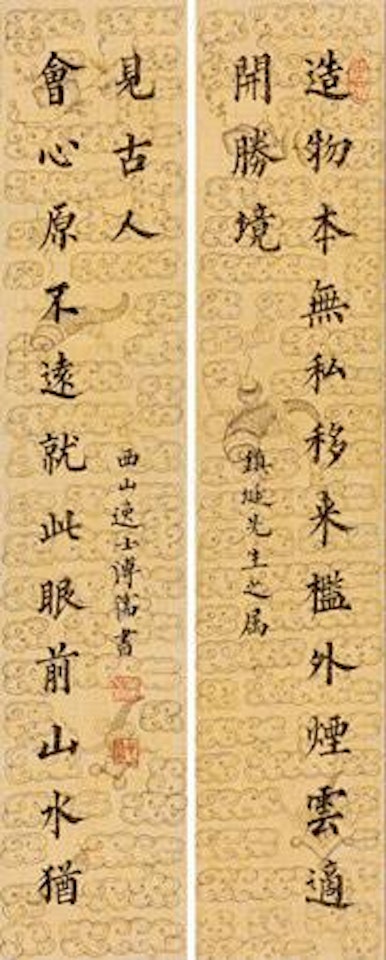 造物本無私移来檻外煙雲適
開勝境
先生之屬
會心原不遠就此眼前山水猶
見古人
西山逸士溥儒書